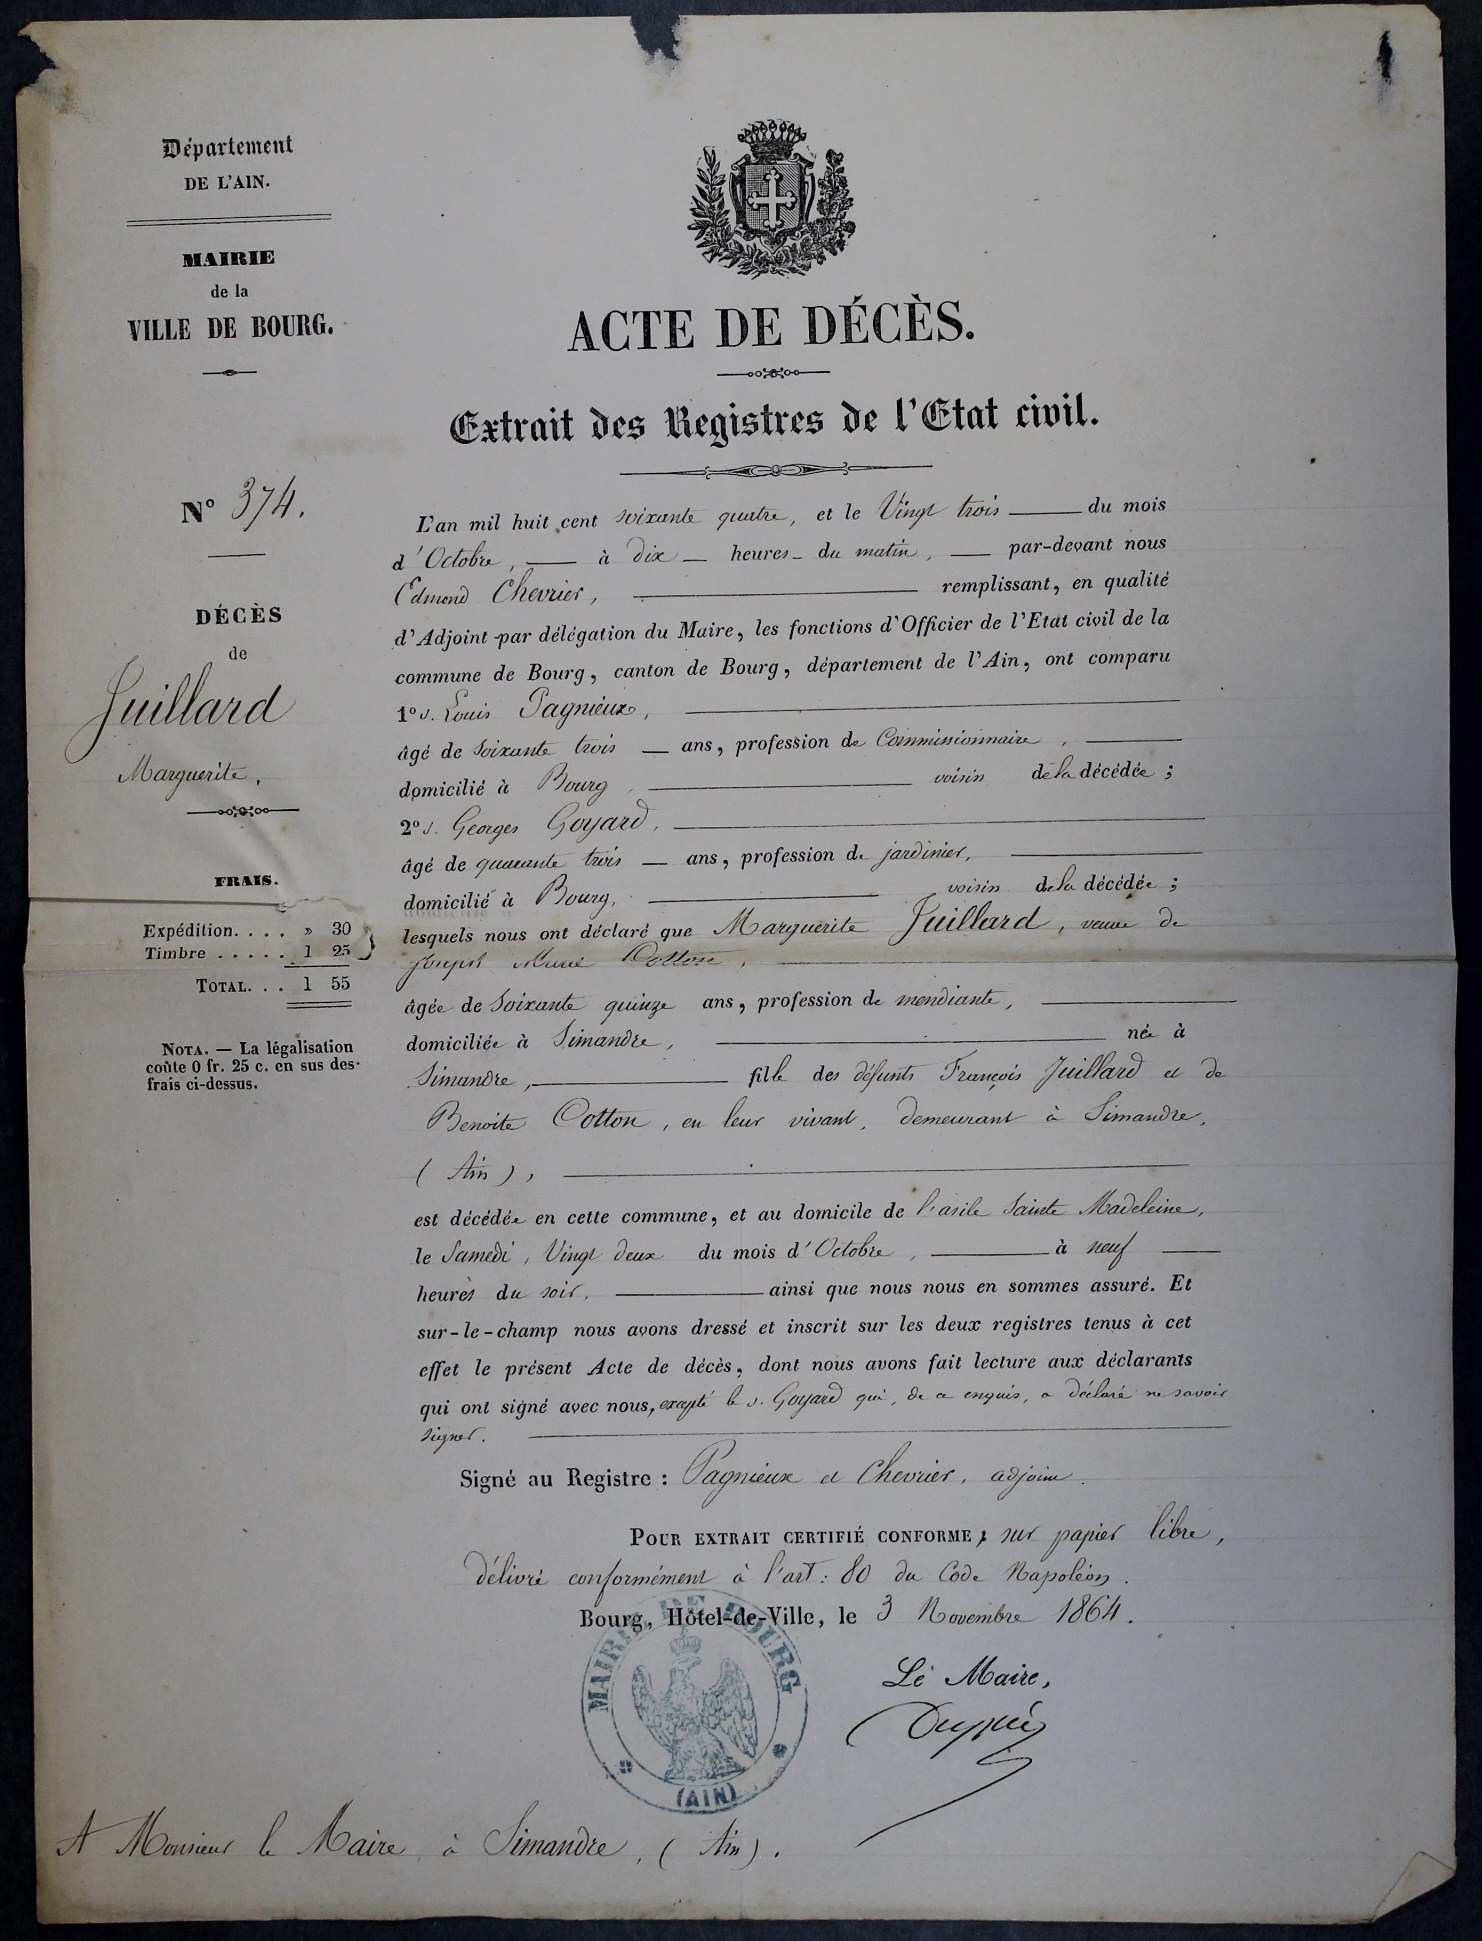 Département
DE L'AIN.
MAIRIE
de la
VILLE DE BOURG.
ACTE DE DÉCÈS.
Extrait des Registres de l'Etat civil.
N° 374.
DÉCÈS
de
Juillard
Marguerite,
FRAIS.
Expédition. . . . » 30
Timbre . . . . . 1 25
TOTAL. . . 1 55
NOTA. — La légalisation
coûte 0 fr. 25 c. en sus des
frais ci-dessus.
L'an mil huit cent soixante quatre, et le Vingt trois du mois
d'Octobre, à dix heures du matin, par-devant nous
Edmond Chevrier, remplissant, en qualité
d'Adjoint par délégation du Maire, les fonctions d'Officier de l'Etat civil de la
commune de Bourg, canton de Bourg, département de l'Ain, ont comparu
1° s. Louis Pagnieux,
âgé de soixante trois ans, profession de Commissionnaire,
domicilié à Bourg, voisin de la décédée ;
2° s. Georges Goyard,
âgé de quarante trois ans, profession de jardinier,
domicilié à Bourg, voisin de la décédée ;
lesquels nous ont déclaré que Marguerite Juillard, veuve de
Joseph Marie Cotton,
âgée de soixante quinze ans, profession de mendiante,
domiciliée à Simandre, née à
Simandre, fille des défunts François Juillard et de
Benoite Cotton, en leur vivant, demeurant à Simandre,
(Ain),
est décédée en cette commune, et au domicile de l'asile Sainte Madeleine,
le Samedi, Vingt deux du mois d'Octobre, à neuf
heures du soir, ainsi que nous nous en sommes assuré. Et
sur-le-champ nous avons dressé et inscrit sur les deux registres tenus à cet
effet le présent Acte de décès, dont nous avons fait lecture aux déclarants
qui ont signé avec nous, excepté le s. Goyard qui, de ce enquis, a déclaré ne savoir
signer.
Signé au Registre : Pagnieux et Chevrier, adjoint.
POUR EXTRAIT CERTIFIÉ CONFORME, sur papier libre,
délivré conformément à l'art: 80 du Code Napoléon.
Bourg, Hôtel-de-Ville, le 3 Novembre 1864.
MAIRIE DE BOURG
(AIN)
Le Maire,
A Monsieur le Maire à Simandre, (Ain).